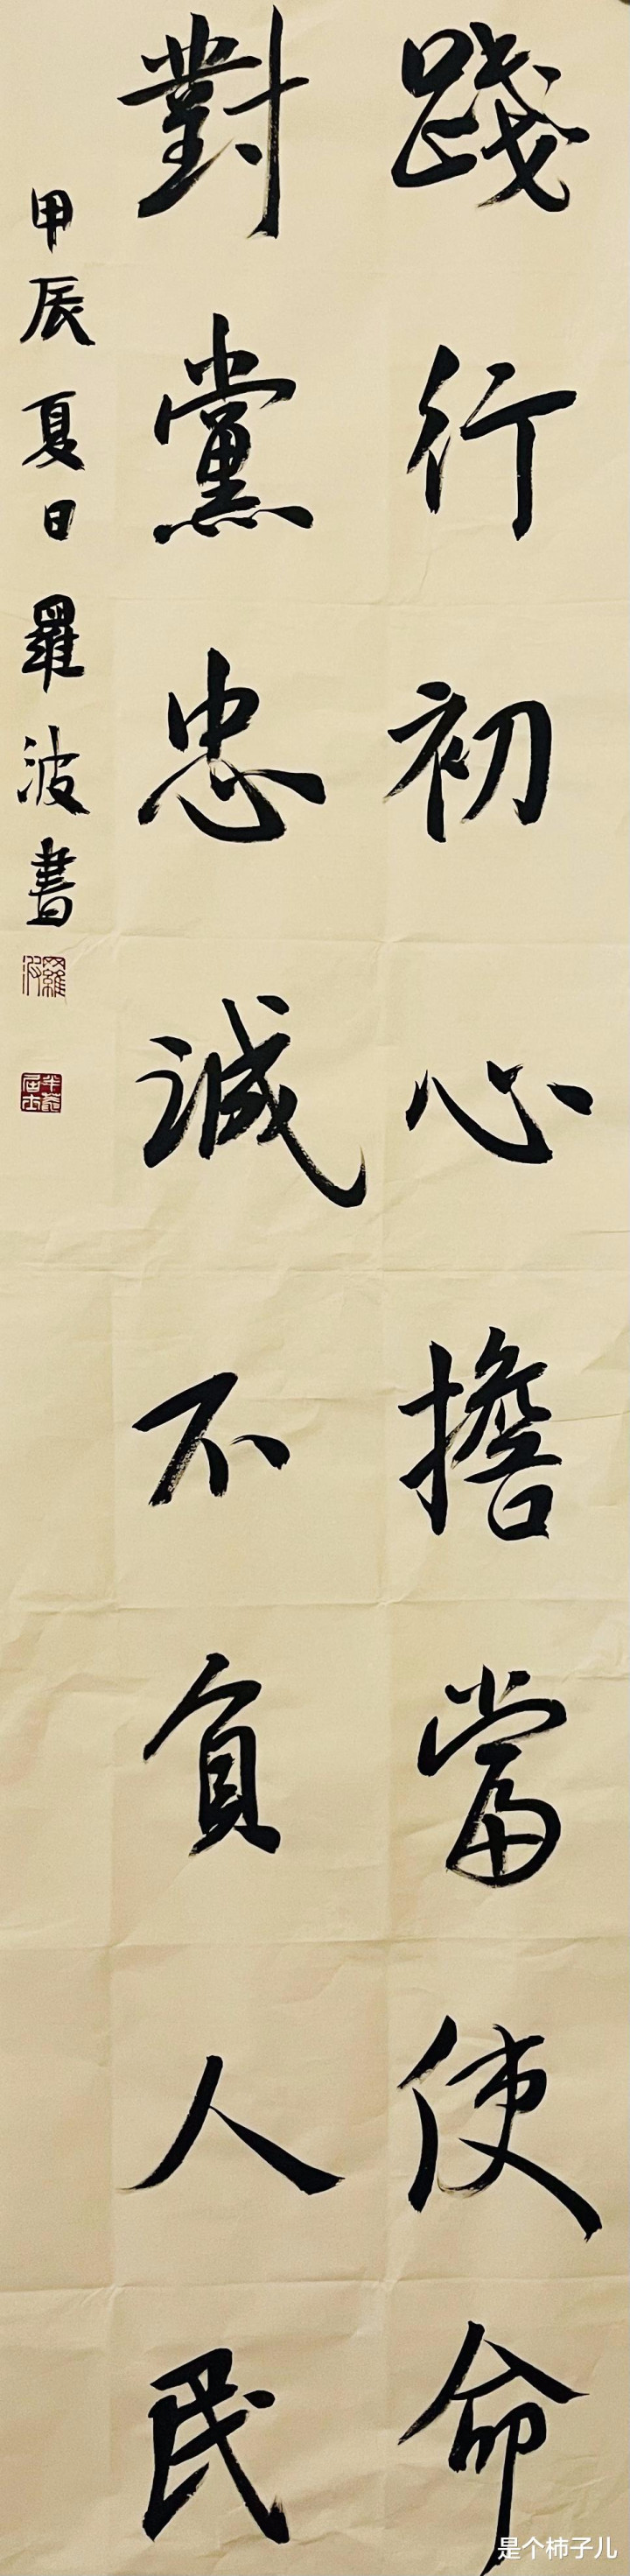 踐行初心擔當使命
對黨忠誠不負人民
甲辰夏日羅波書
羅波
是个柿子儿